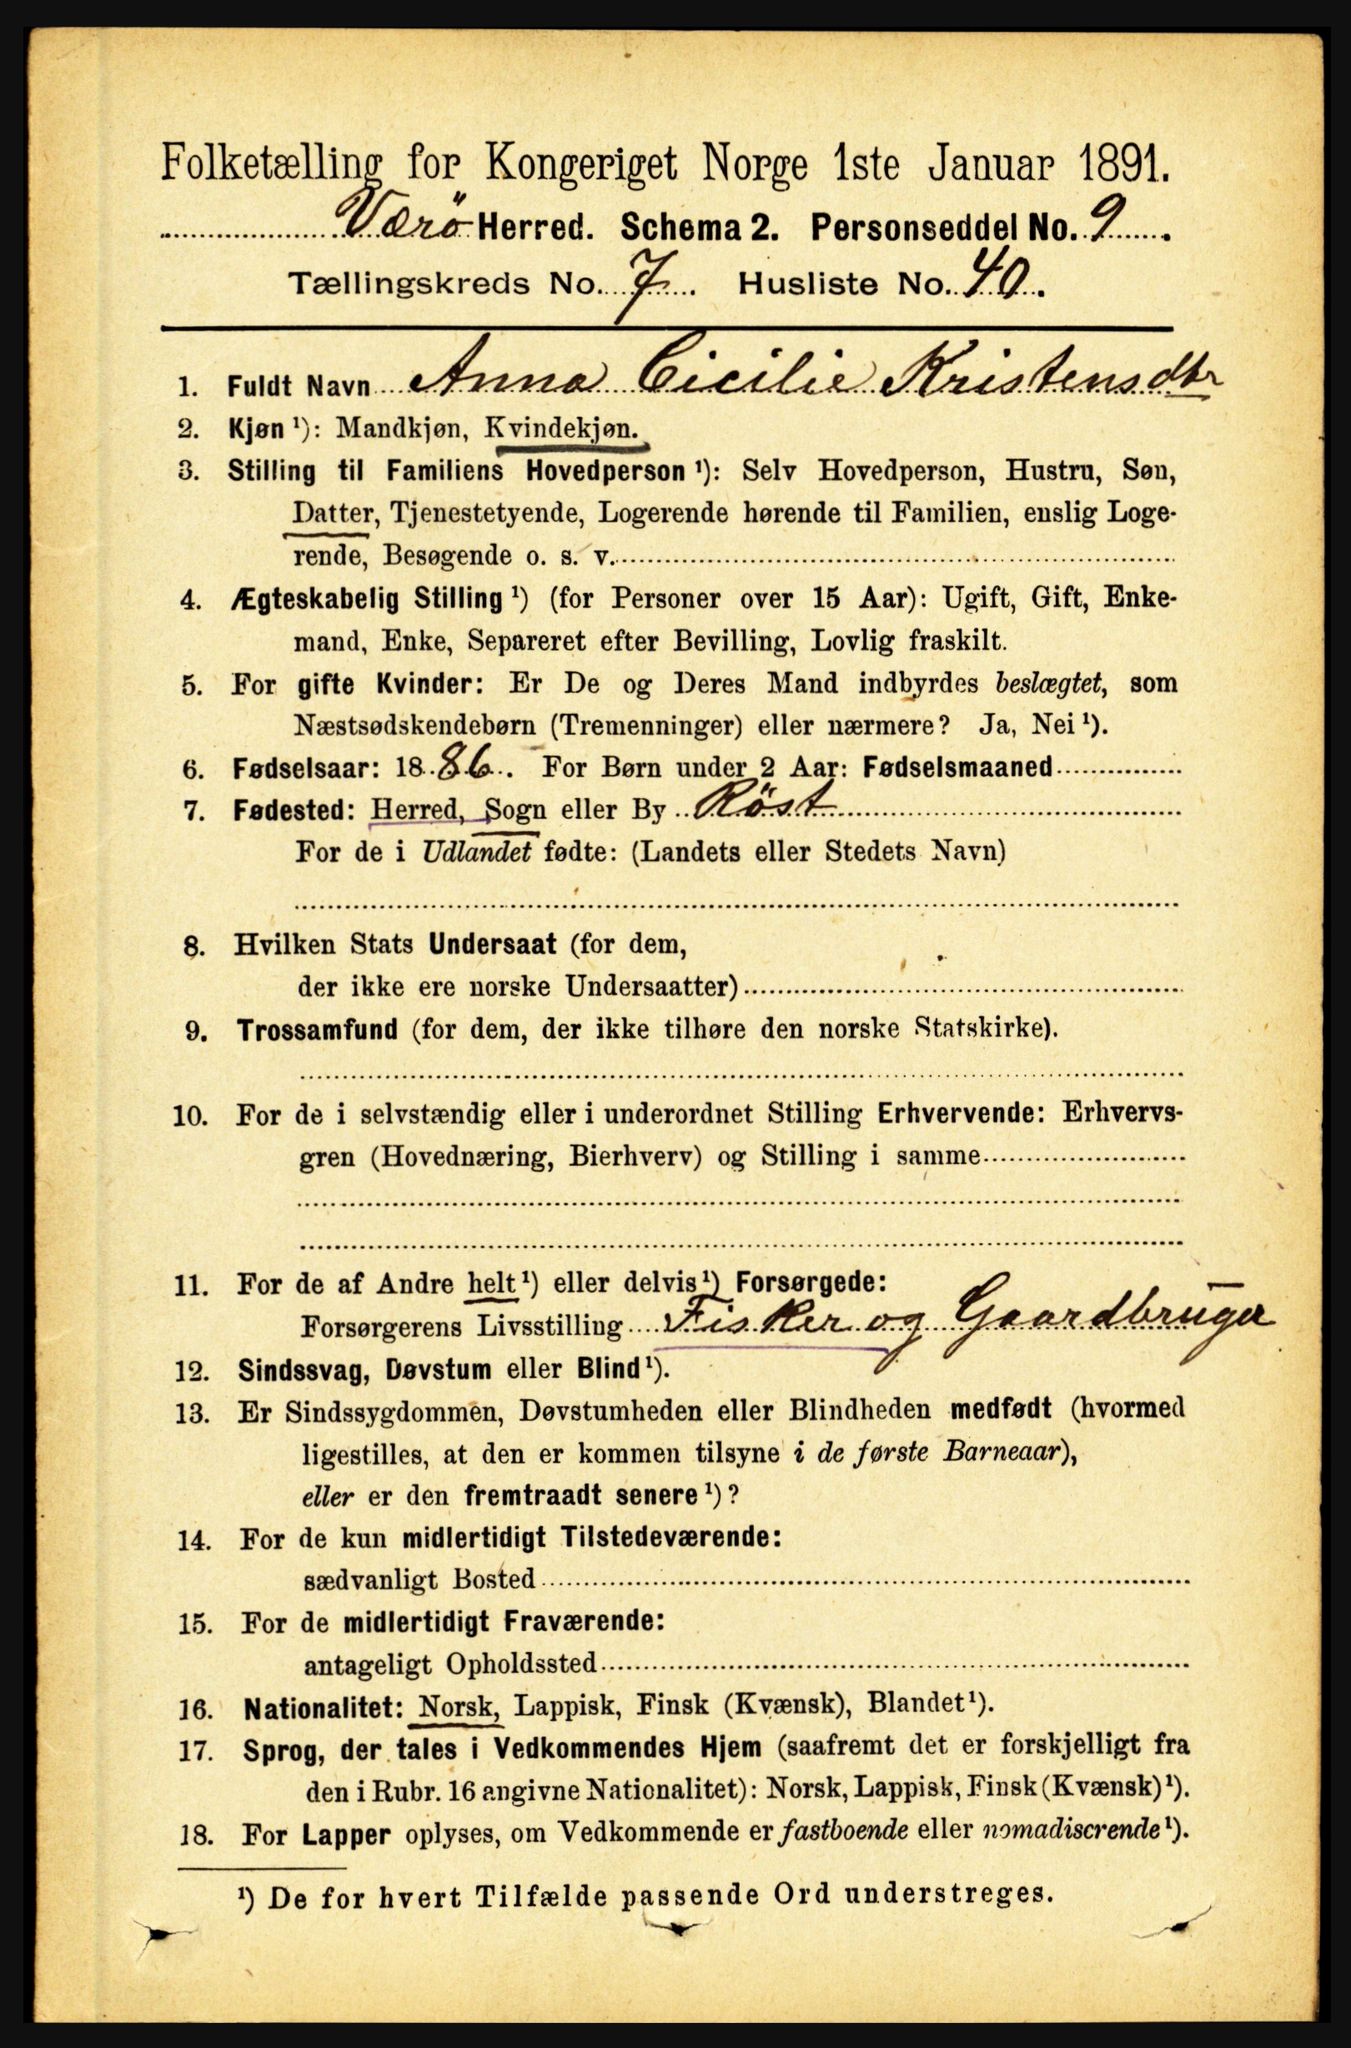 Folketælling for Kongeriget Norge 1ste Januar 1891.
Værö Herred. Schema 2. Personseddel No. 9.
Tællingskreds No. 7. Husliste No. 40.
1. Fuldt Navn Anna Cicilie Kristensdtr
2. Kjøn ¹): Mandkjøn, Kvindekjøn.
3. Stilling til Familiens Hovedperson ¹): Selv Hovedperson, Hustru, Søn,
Datter, Tjenestetyende, Logerende hørende til Familien, enslig Loge-
rende, Besøgende o. s. v.
4. Ægteskabelig Stilling ¹) (for Personer over 15 Aar): Ugift, Gift, Enke-
mand, Enke, Separeret efter Bevilling, Lovlig fraskilt.
5. For gifte Kvinder: Er De og Deres Mand indbyrdes beslægtet, som
Næstsødskendebørn (Tremenninger) eller nærmere? Ja, Nei ¹).
6. Fødselsaar: 1886. For Børn under 2 Aar: Fødselsmaaned
7. Fødested: Herred, Sogn eller By Röst
For de i Udlandet fødte: (Landets eller Stedets Navn)
8. Hvilken Stats Undersaat (for dem,
der ikke ere norske Undersaatter)
9. Trossamfund (for dem, der ikke tilhøre den norske Statskirke).
10. For de i selvstændig eller i underordnet Stilling Erhvervende: Erhvervs-
gren (Hovednæring, Bierhverv) og Stilling i samme
11. For de af Andre helt ¹) eller delvis ¹) Forsørgede:
Forsørgerens Livsstilling Fisker og Gaardbruger
12. Sindssvag, Døvstum eller Blind ¹).
13. Er Sindssygdommen, Døvstumheden eller Blindheden medfødt (hvormed
ligestilles, at den er kommen tilsyne i de første Barneaar),
eller er den fremtraadt senere ¹)?
14. For de kun midlertidigt Tilstedeværende:
sædvanligt Bosted
15. For de midlertidigt Fraværende:
antageligt Opholdssted
16. Nationalitet: Norsk, Lappisk, Finsk (Kvænsk), Blandet ¹).
17. Sprog, der tales i Vedkommendes Hjem (saafremt det er forskjelligt fra
den i Rubr. 16 angivne Nationalitet): Norsk, Lappisk, Finsk (Kvænsk) ¹).
18. For Lapper oplyses, om Vedkommende er fastboende eller nomadiserende ¹).
¹) De for hvert Tilfælde passende Ord understreges.